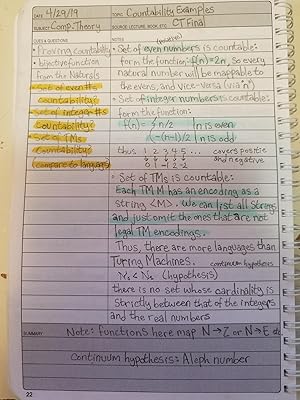 DATE 4/29/19
TOPIC: Countability Examples
SUBJECT: Comp. Theory
SOURCE: LECTURE, BOOK, ETC. CT Final
QUES & QUESTIONS
NOTES
(positive)
• Proving countability:
bijective function
from the Naturals
• Set of even #s
countability:
• Set of integer #s
countability:
• Set of TMs
countability:
compare to languages
• Set of even numbers is countable:
form the function: f(n)=2n, so every
natural number will be mappable to
the evens, and vice-versa (via "n")
• Set of integer numbers is countable:
form the function:
f(n) = { n/2 | n is even
{ -(n-1)/2 | n is odd
thus 1 2 3 4 5... covers positive
0 1 -1 2 -2 and negative
• Set of TMs is countable:
Each TM M has an encoding as a
string <M>. We can list all strings
and just omit the ones that are not
legal TM encodings.
Thus, there are more languages than
Turing Machines. continuum hypothesis
(hypothesis)
there is no set whose cardinality is
strictly between that of the integers
and the real numbers
SUMMARY
Note: functions here map N→Z or N→E etc
Continuum hypothesis: Aleph number
22